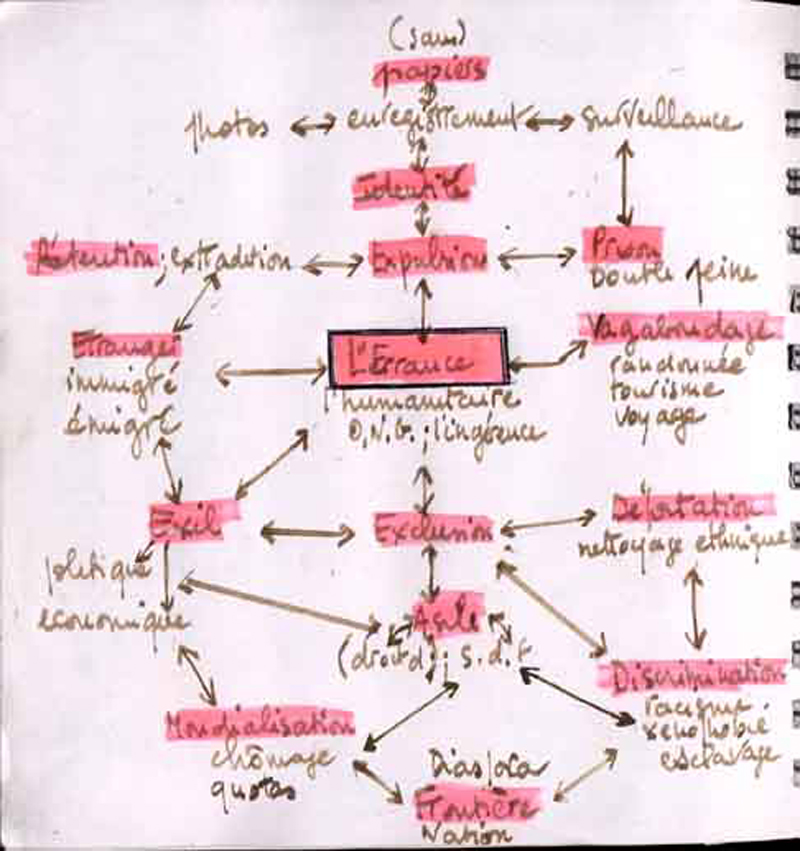 (sans)
papiers
photos ↔ enregistrement ↔ surveillance
Identité
Rétention ; extradition ↔ Expulsion ↔ Prison
Double peine
Etranger
immigré
émigré
L'Errance
l'humanitaire
O.N.G. ; l'ingérence
Vagabondage
randonnée
tourisme
voyage
Exil
politique
economique
Exclusion
Déportation
nettoyage ethnique
Asile
(droit d') ; S.d.f
Discrimination
racisme
xénophobie
esclavage
Mondialisation
chômage
quotas
Diaspora
Frontière
Nation